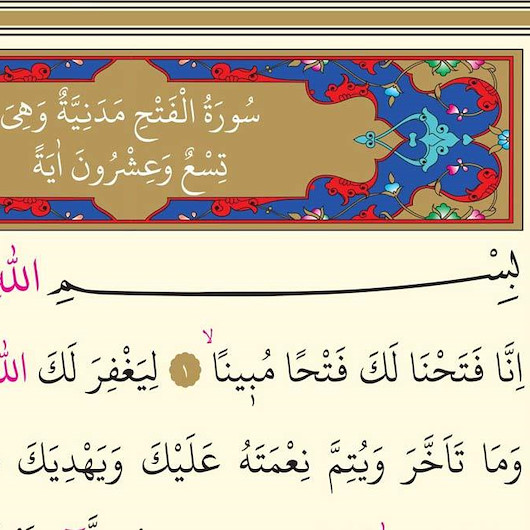 سُورَةُ الْفَتْحِ مَدَنِيَّةٌ وَهِىَ
تِسْعٌ وَعِشْرُونَ اٰيَةً
بِسْمِ اللّٰهِ
اِنَّا فَتَحْنَا لَكَ فَتْحًا مُب۪ينًاۙ ١ لِيَغْفِرَ لَكَ
وَمَا تَاَخَّرَ وَيُتِمَّ نِعْمَتَهُ عَلَيْكَ وَيَهْدِيَكَ